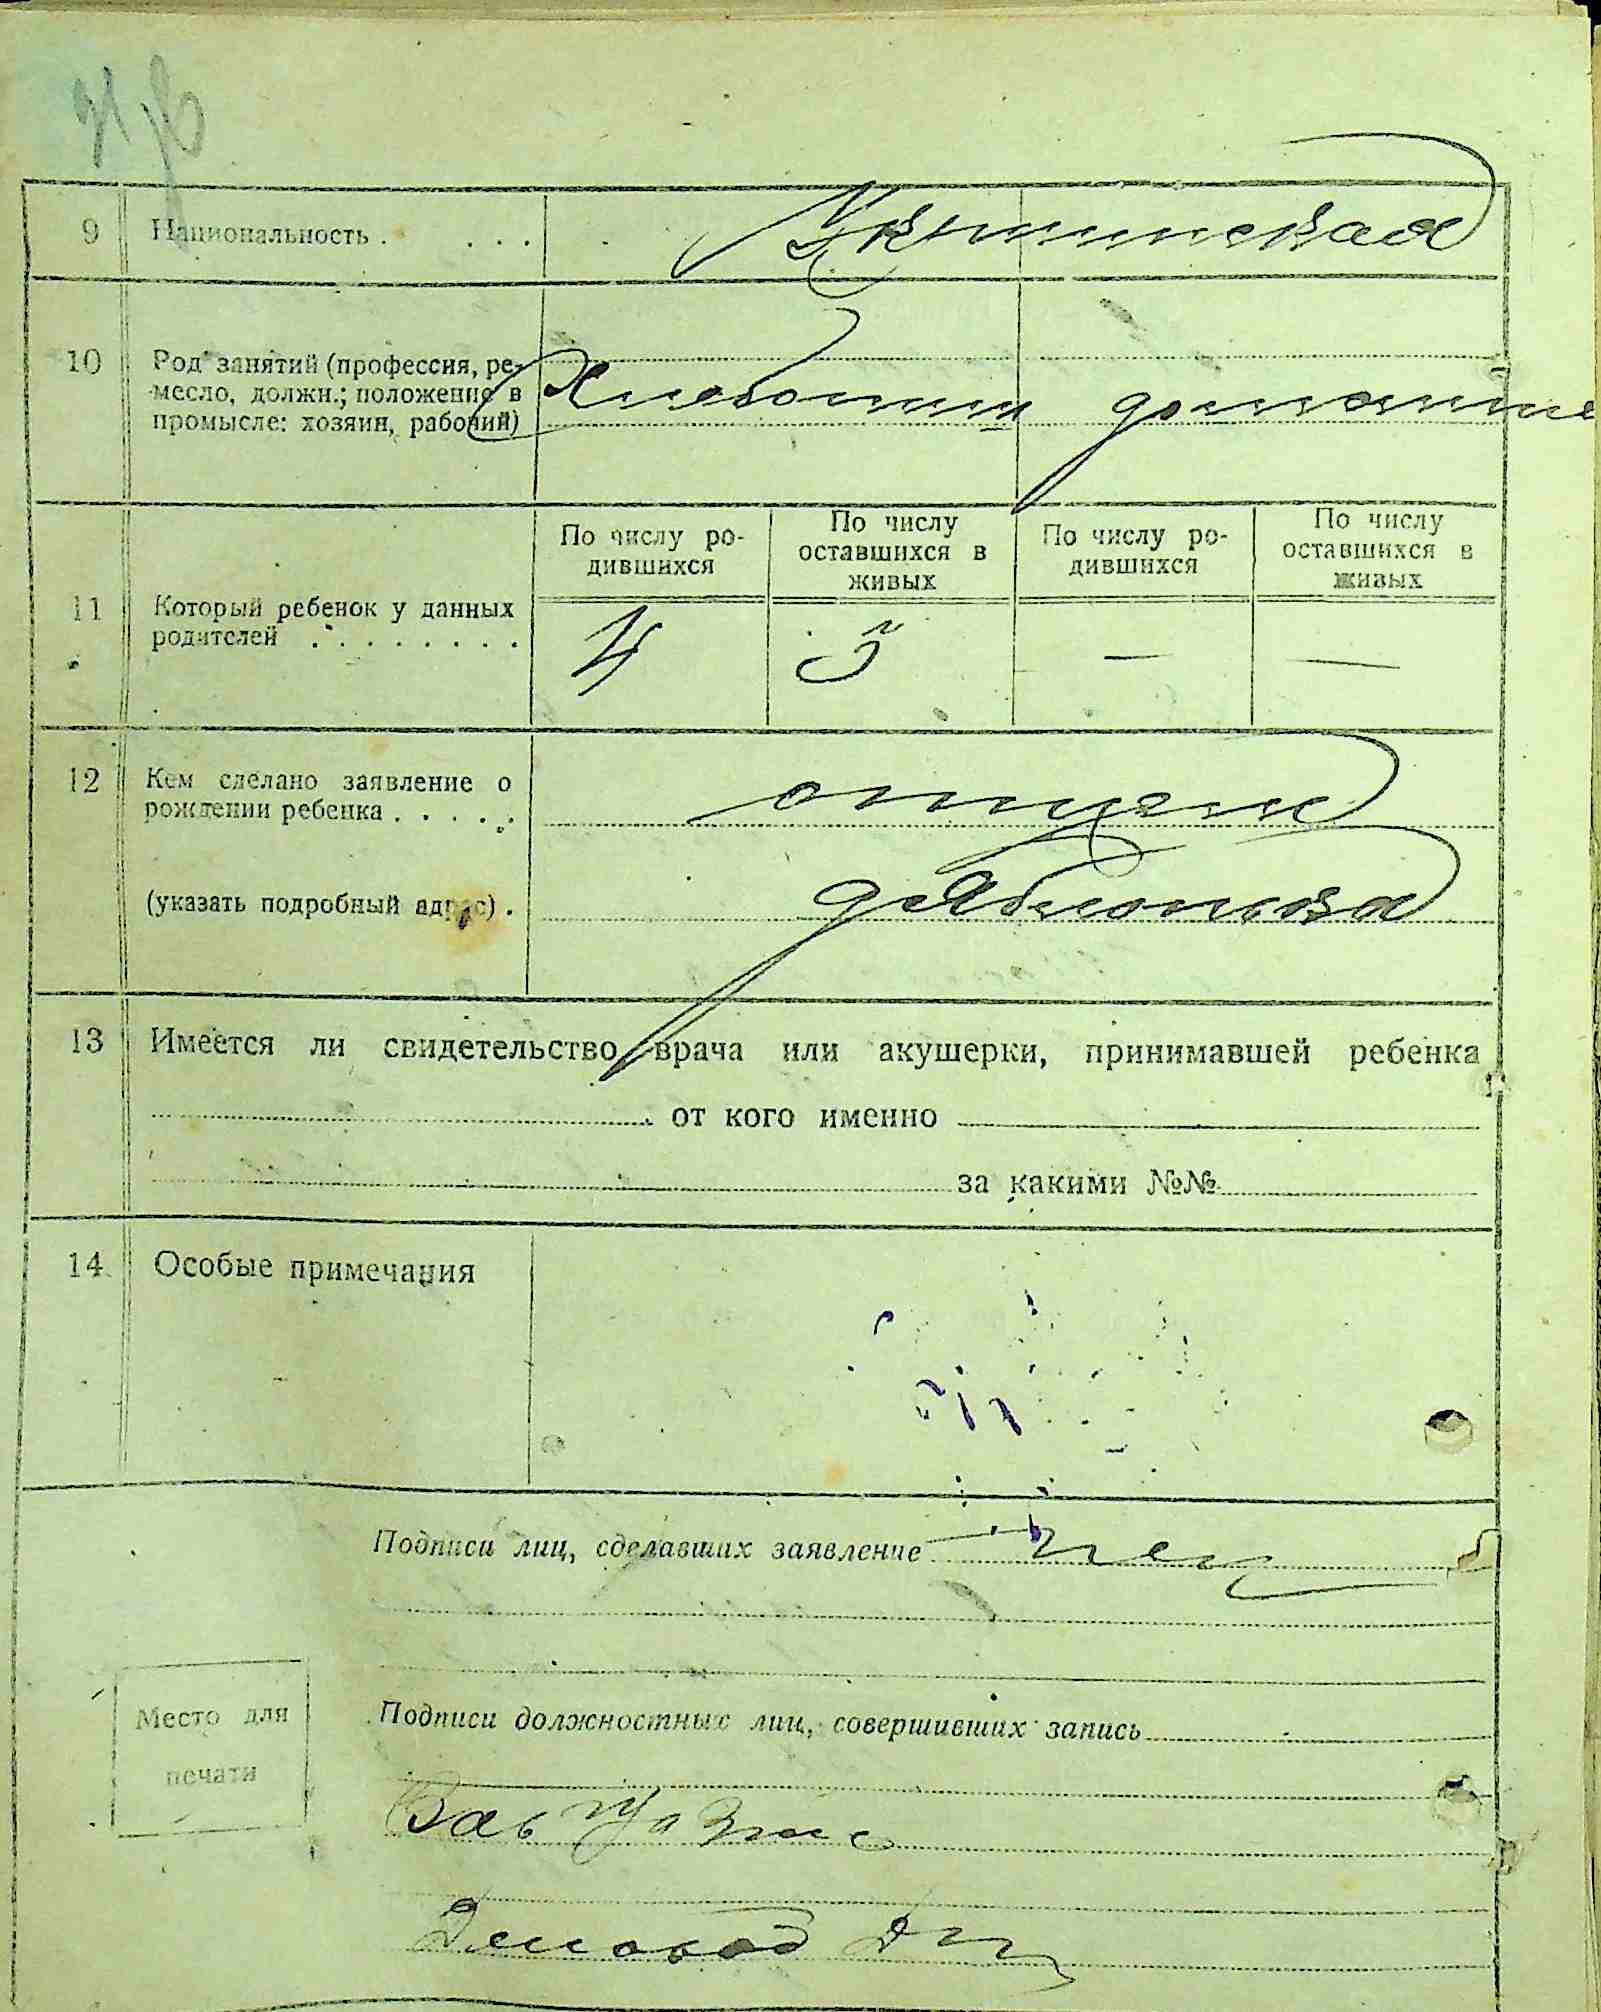 9 Национальность . . . . Украинская
10 Род занятий (профессия, ре-
месло, должн.; положение в
промысле: хозяин, рабочий)
Хлебопаш домашние
По числу ро-
дившихся
По числу
оставшихся в
живых
По числу ро-
дившихся
По числу
оставшихся в
живых
11 Который ребенок у данных
родителей . . . . . . . .
4 3 — —
12 Кем сделано заявление о
рождении ребенка . . . . . отцем
(указать подробный адрес) . д Яблоновка
13 Имеется ли свидетельство врача или акушерки, принимавшей ребенка
от кого именно
за какими №№
14 Особые примечания
Подписи лиц, сделавших заявление
Место для
печати
Подписи должностных лиц, совершивших запись
Зав
Деловод